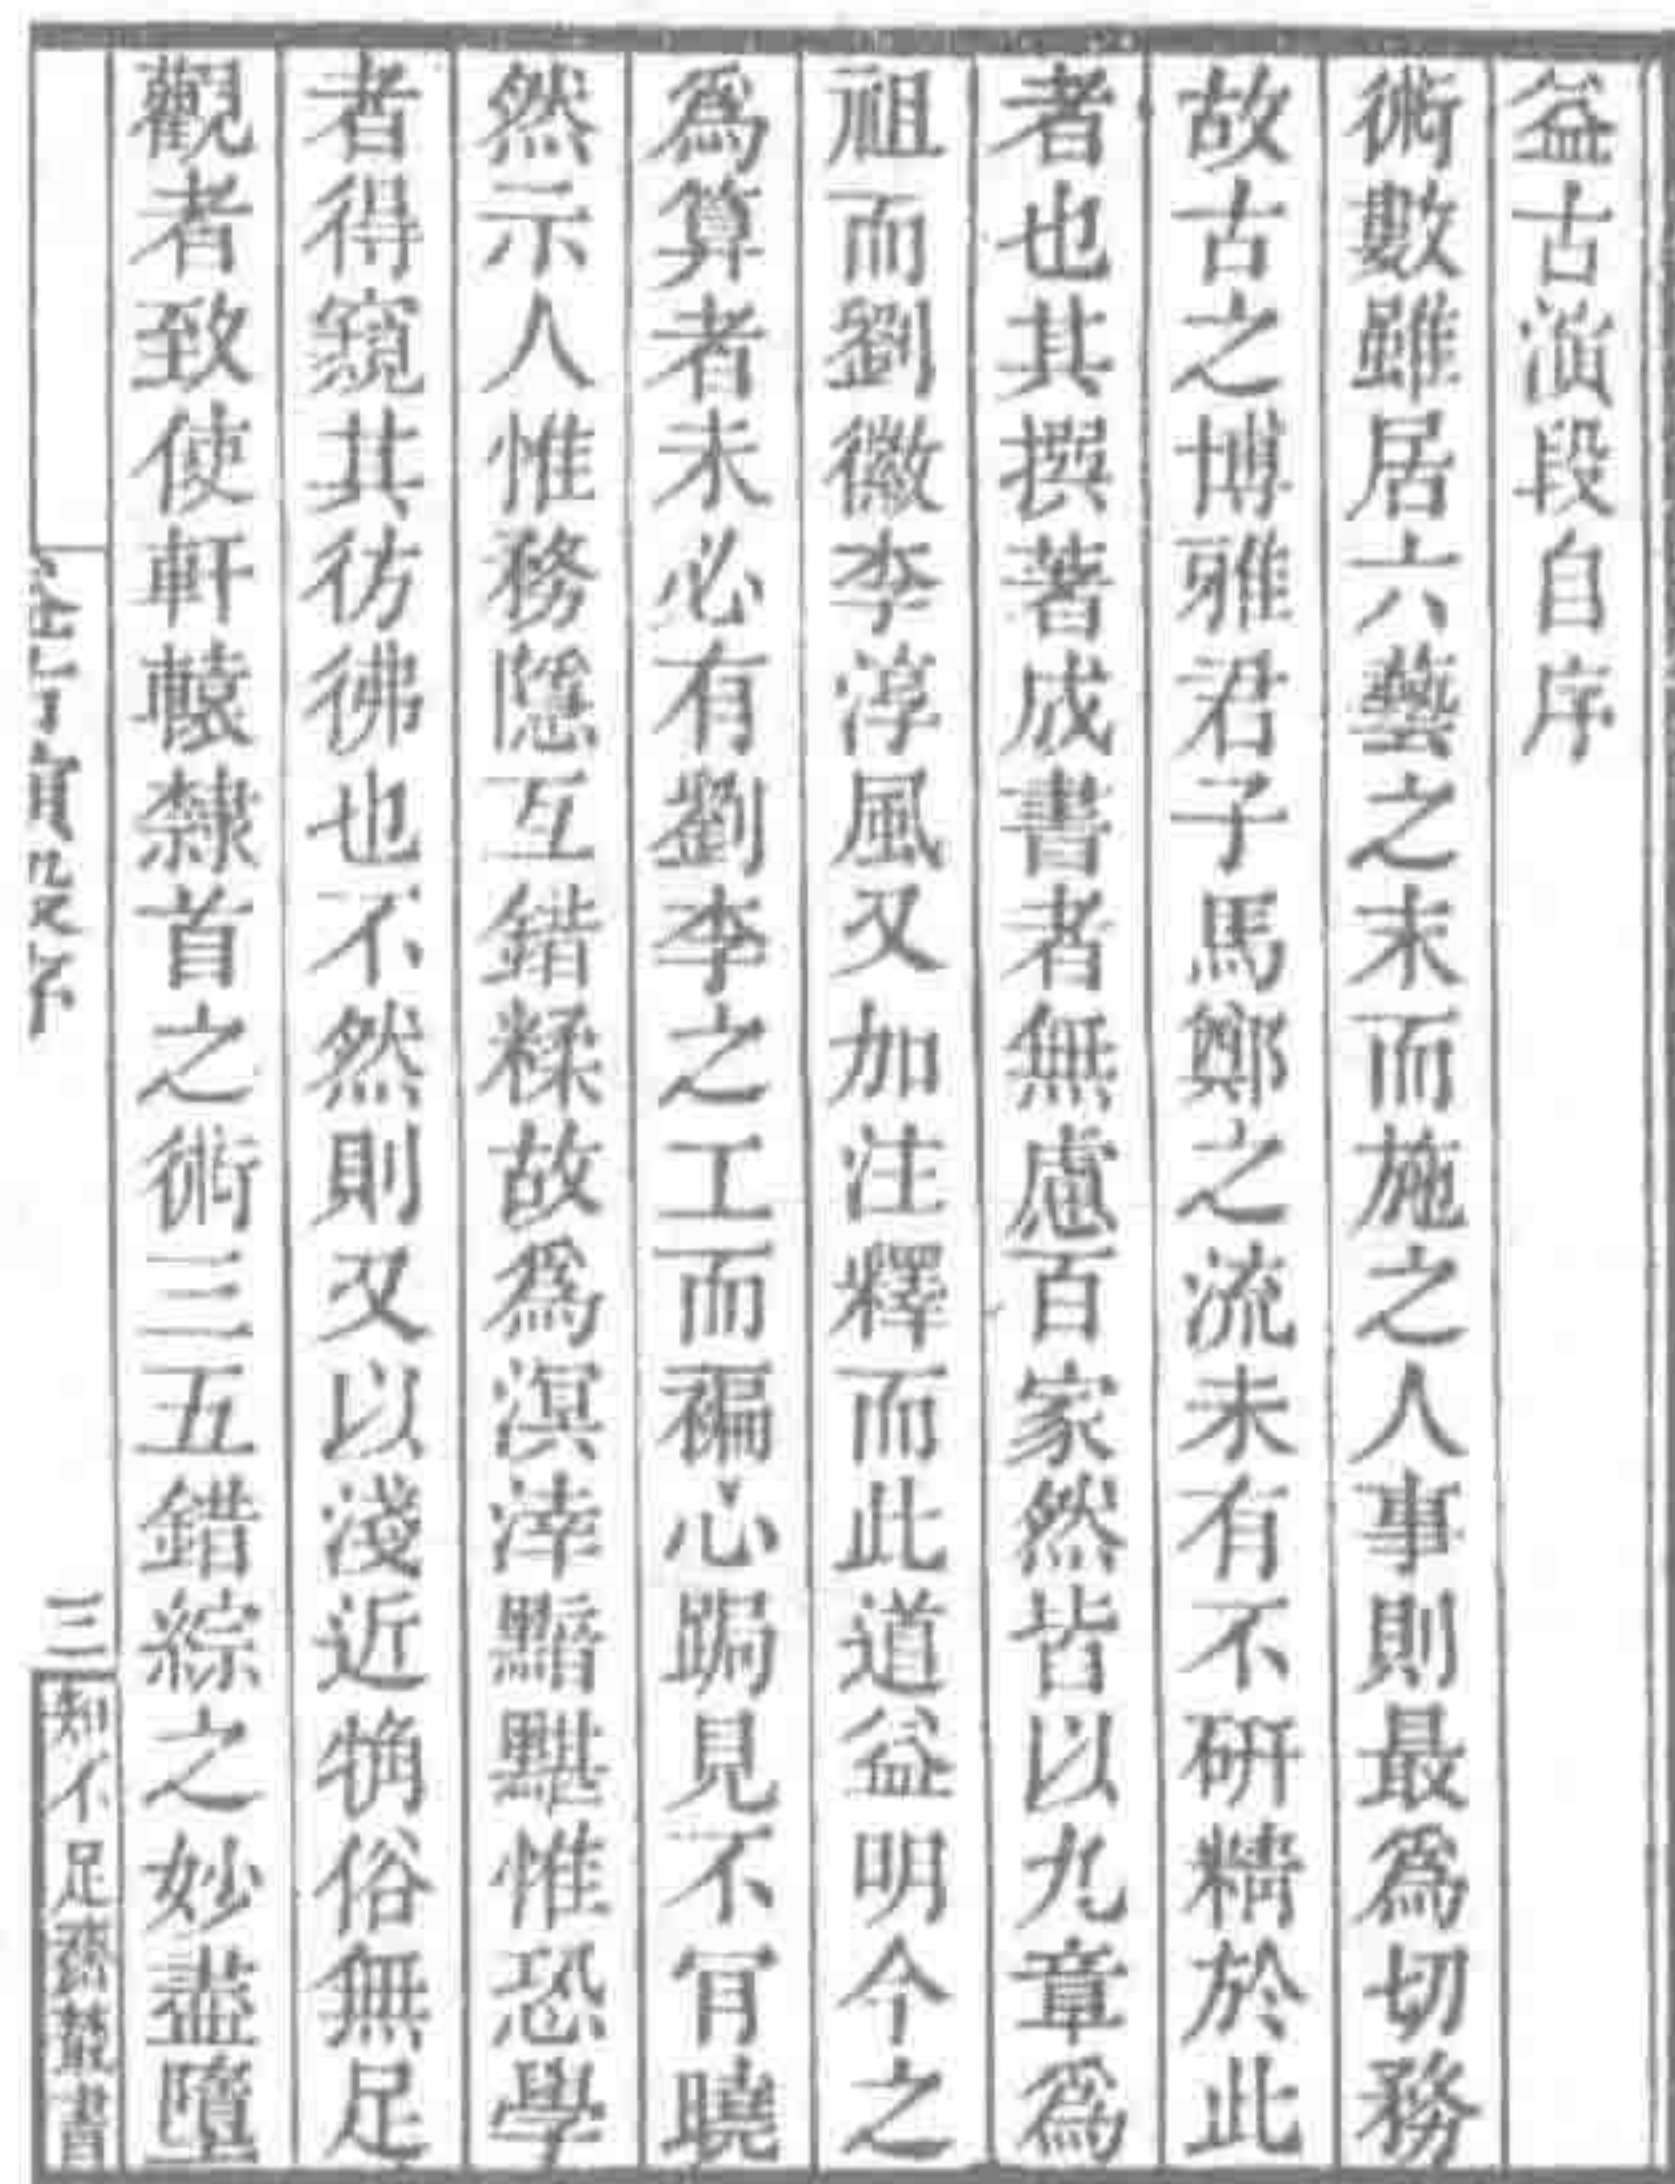 益古演段自序
術數雖居六藝之末而施之人事則最為切務
故古之博雅君子馬鄭之流未有不研精於此
者也其撰著成書者無慮百家然皆以九章爲
祖而劉徽李淳風又加注釋而此道益明今之
爲算者未必有劉李之工而褊心跼見不肎曉
然示人惟務隱互錯糅故爲溟涬黯黮惟恐學
者得窺其彷彿也不然則又以淺近觕俗無足
觀者致使軒轅隸首之術三五錯綜之妙盡墮
三
知不足齋叢書